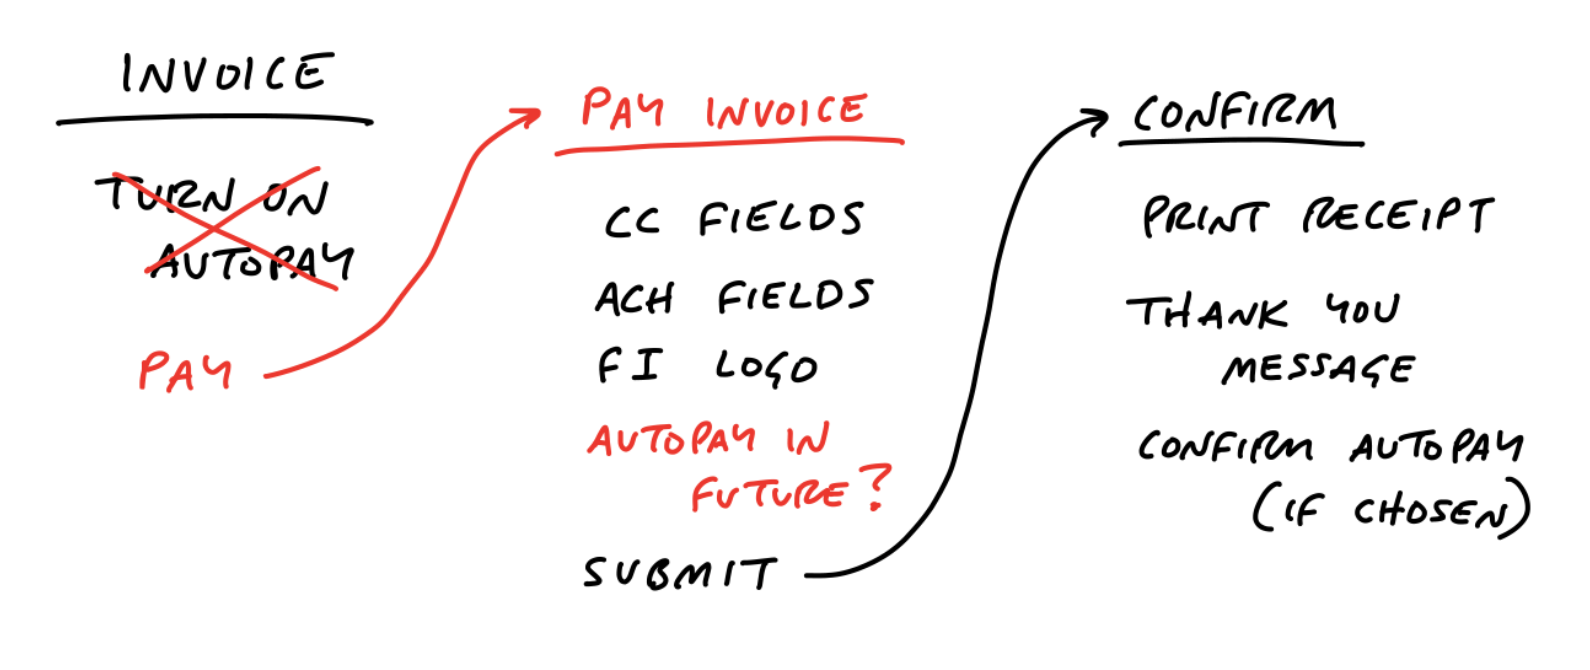 INVOICE
TURN ON
AUTOPAY
PAY
PAY INVOICE
CC FIELDS
ACH FIELDS
FI LOGO
AUTOPAY IN
FUTURE?
SUBMIT
CONFIRM
PRINT RECEIPT
THANK YOU
MESSAGE
CONFIRM AUTOPAY
(IF CHOSEN)